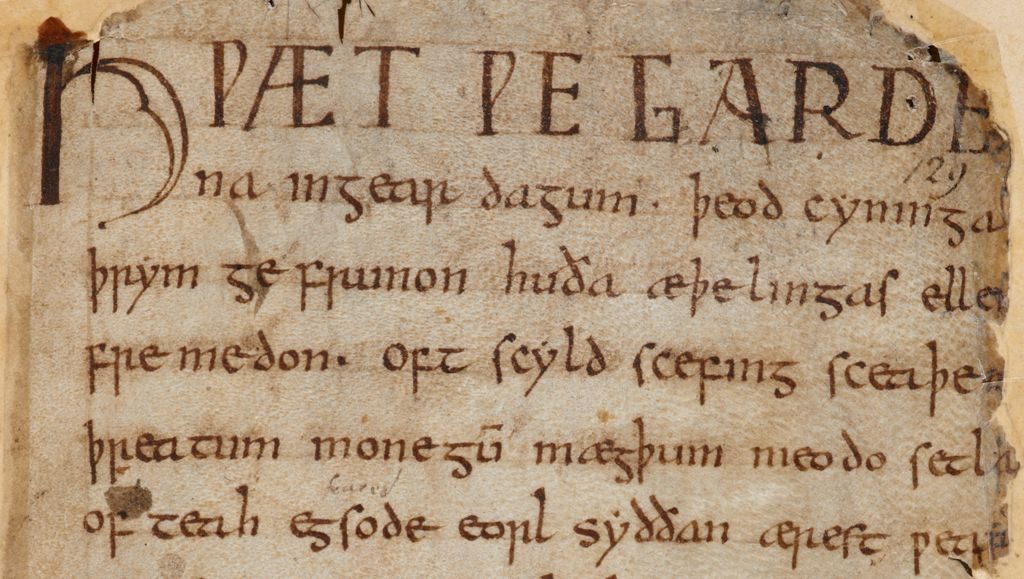 HǷÆT ǷE GARDE
na ingear dagum · þeod cyninga
þrym ge frunon huða æþelingas elle
fre medon · oft scyld scefing sceaþe
þreatum monegū mægþum meodo setla
of teah egsode eorl syððan ærest ƿear
129